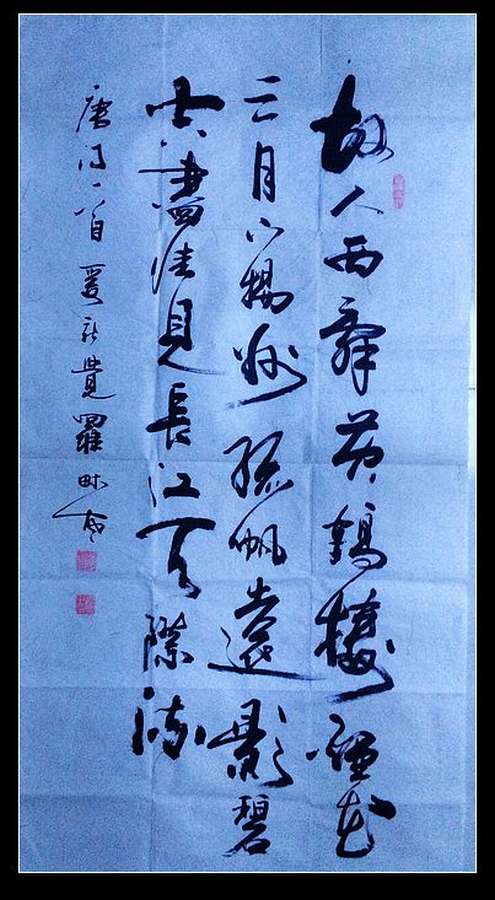 故人西辭黃鶴樓煙花
三月下揚州孤帆遠影碧
空盡惟見長江天際流
唐詩一首 愛新覺羅